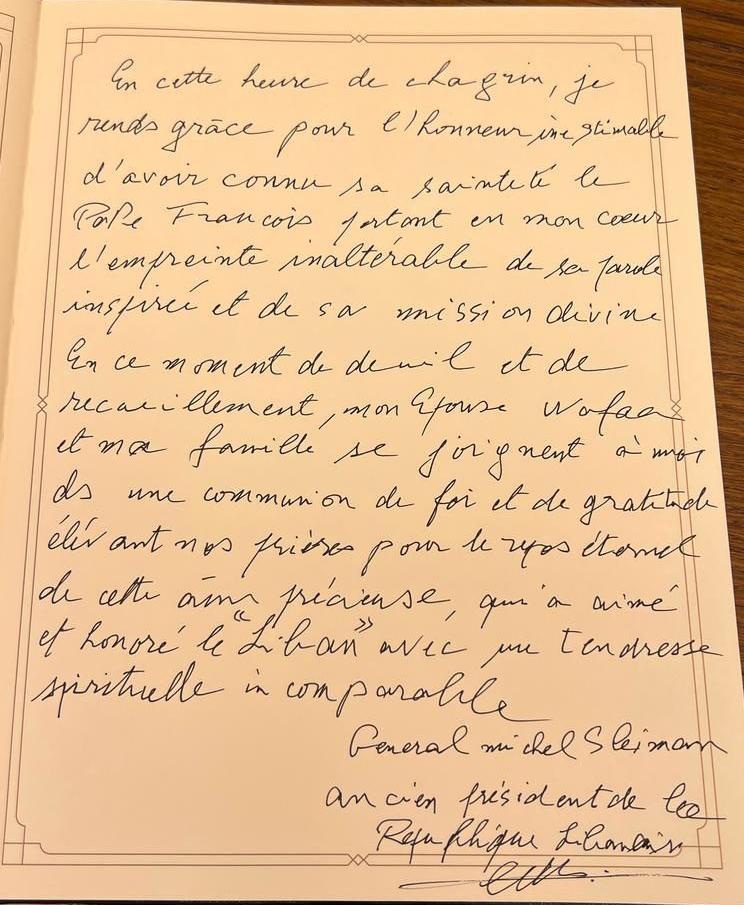 En cette heure de chagrin, je
rends grâce pour l'honneur inestimable
d'avoir connu sa sainteté le
Pape Francois portant en mon coeur
l'empreinte inaltérable de sa parole
inspirée et de sa mission divine
En ce moment de deuil et de
recueillement, mon Epouse Wafaa
et ma famille se joignent à moi
ds une communion de foi et de gratitude
élévant nos prières pour le repos éternel
de cette âme précieuse, qui a aimé
et honoré le "Liban" avec une tendresse
spirituelle incomparable
General michel Sleiman
ancien président de la
République Libanaise